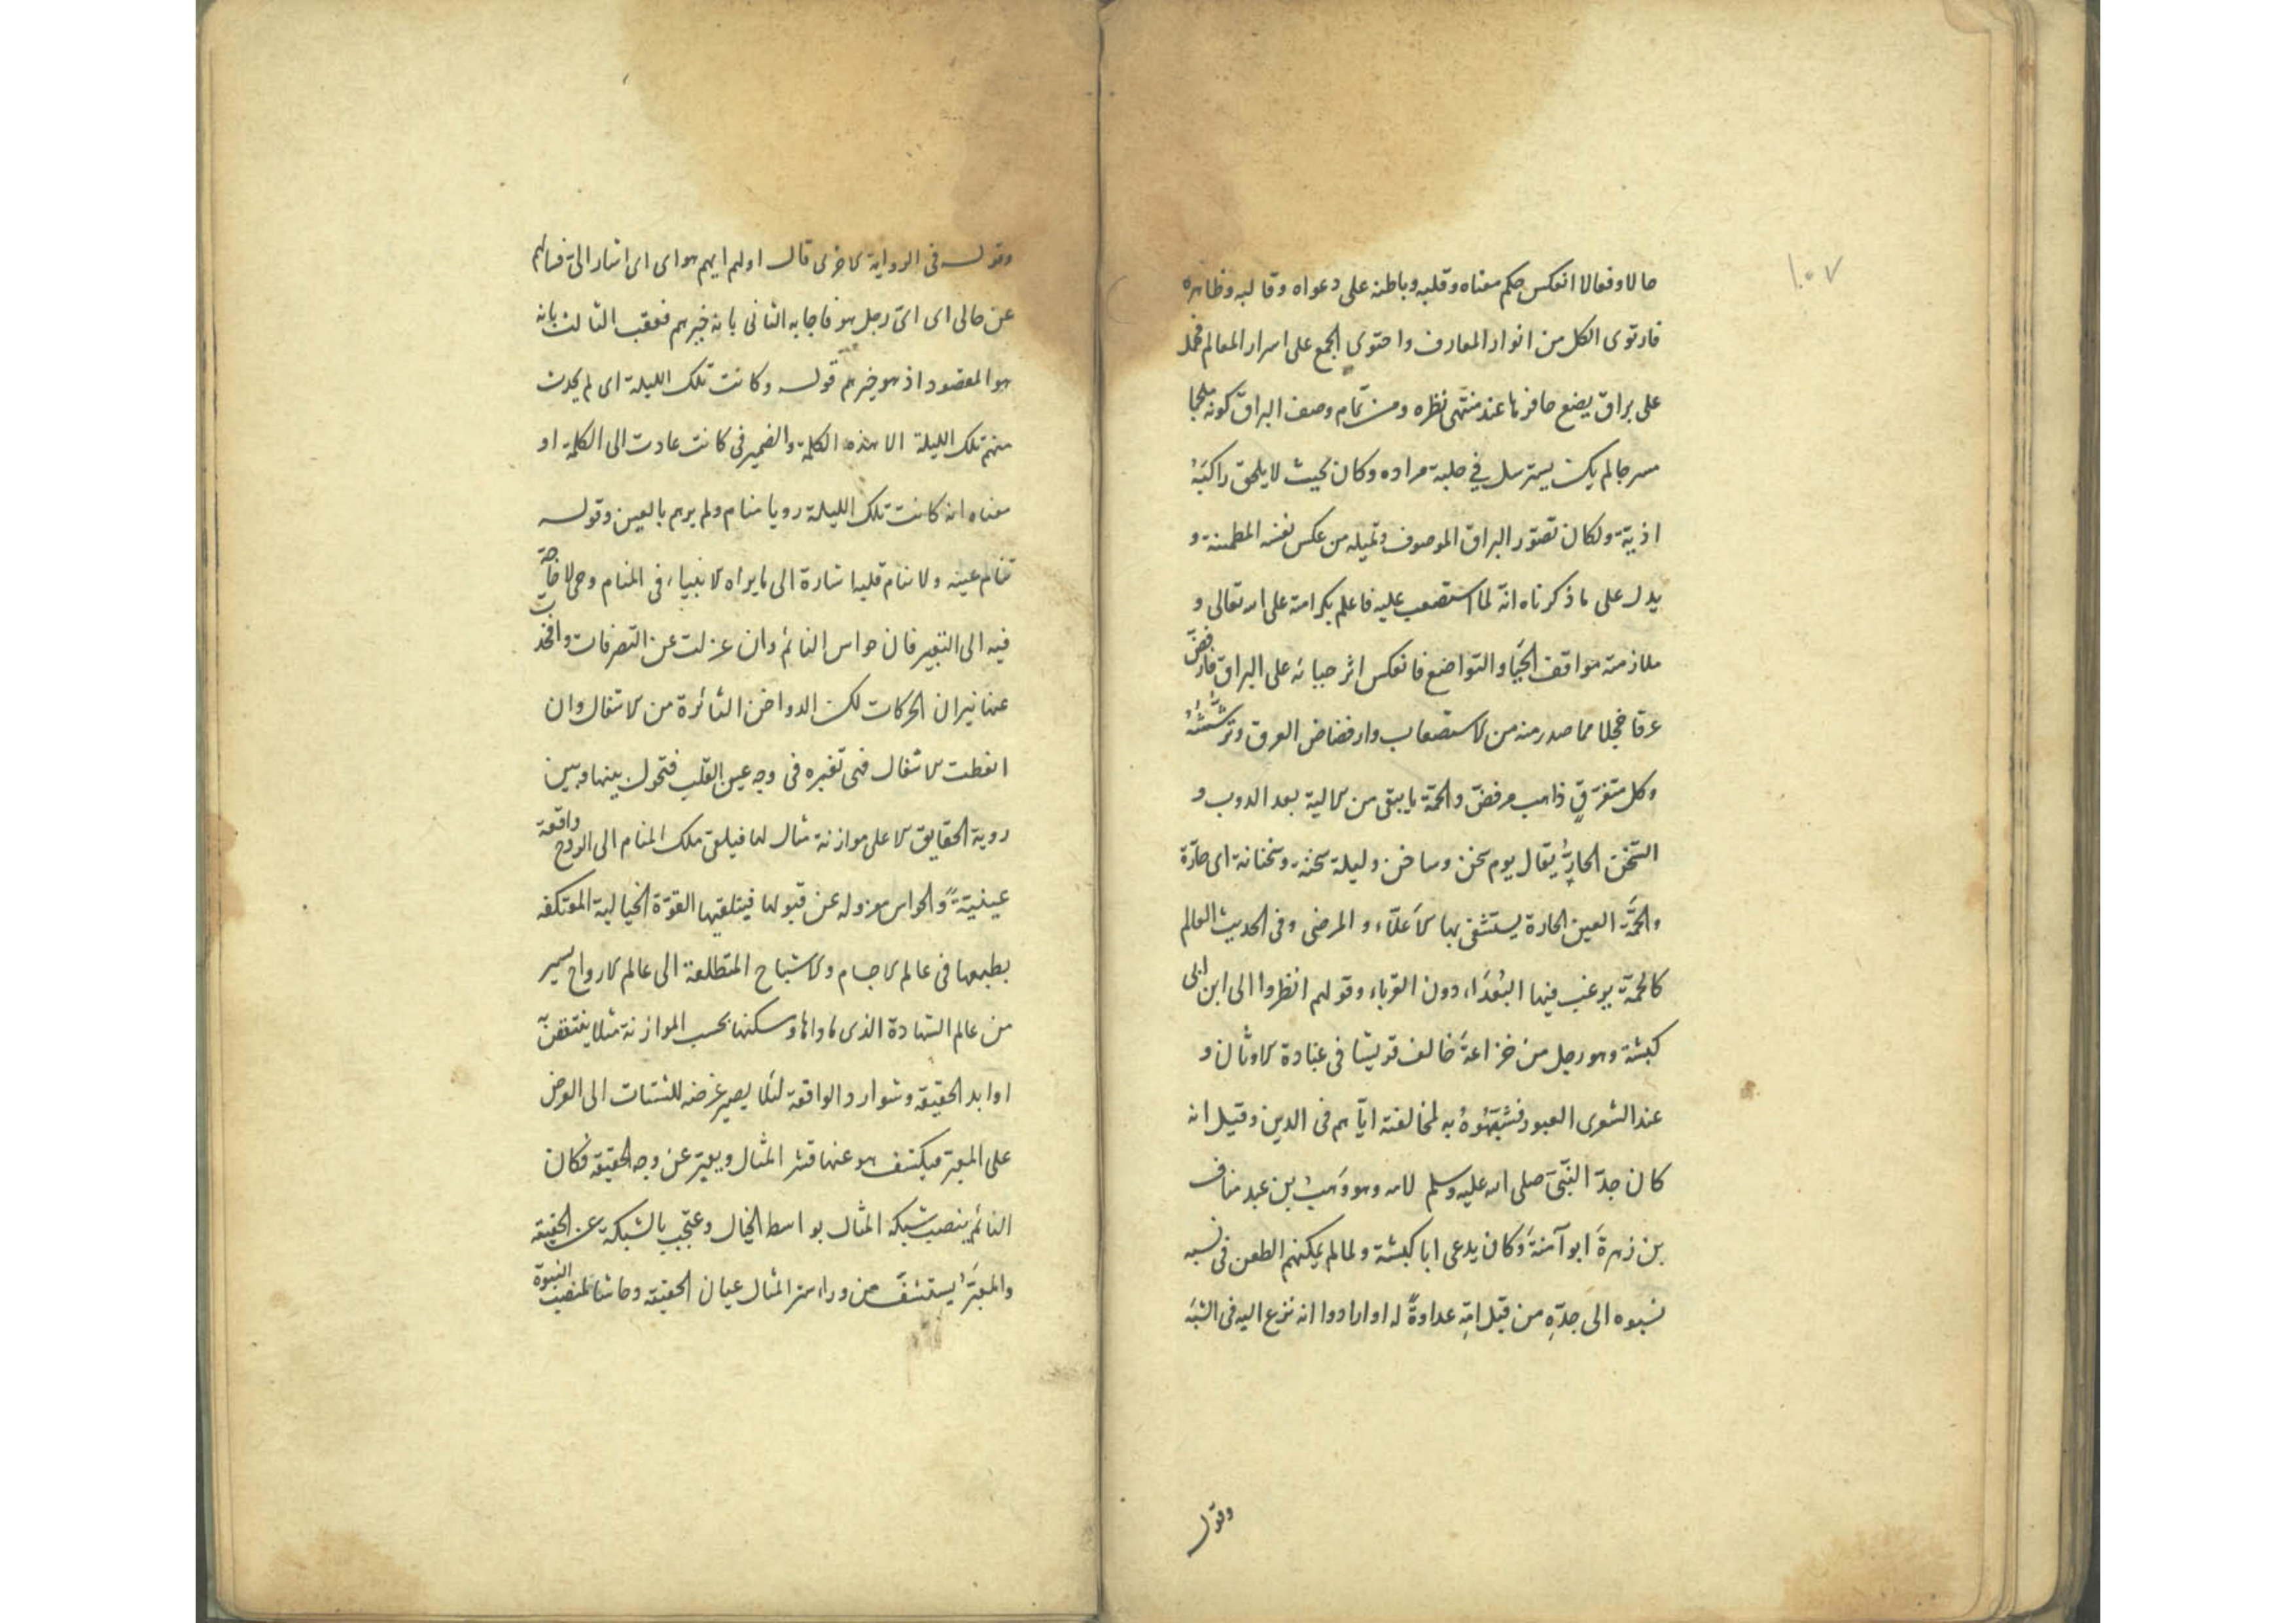 ١٠٧
حالا وفعالا انعكس حكم معناه وقلبه وباطنه على دعواه وقالبه وظاهره
فارتوى الكل من انوار المعارف واحتوى الجمع على اسرار المعالم فحمل
على براق يضع حافرها عند منتهى نظره ومن تمام وصف البراق كونه ملجما
مسرجا لم يكن يسترسل في حلبة مراده وكان بحيث لا يلحق راكبَهُ
اذية ولكان تصوّر البراق الموصوف وتميله من عكس نفسه المطمئنة و
يدل على ما ذكرناه انه لما استصعب عليه فاعلم بكرامته على الله تعالى و
ملازمته مواقف الحَيَا والتواضع فانعكس اثر حيائه على البراق فارفضّ
عرقا خجلا مما صدر منه من الاستصعاب وارفضاض العرق وترشّشُهُ
وكل متفرقٍ ذاهب مرفضّ والحمّة ما يبقى من الالية بعد الذوب و
السّخن الحارّ يقال يوم سخن وساخن وليلة سخنة وسخنانة اى حارّة
والحَمَّة العين الحارة يستشفى بها الاَعلّاء والمرضى وفى الحديث العالم
كالحمّة يرغب فيها البُعَدَاء دون القرباء وقولهم انظروا الى ابن ابى
كبشة وهو رجل من خزاعةَ خالف قريشا فى عبادة الاوثان و
عند الشعرى العبور فشبّهُوهُ به لمخالفته ايّاهم فى الدين وقيل انه
كان جدّ النّبىّ صلى الله عليه وسلم لامه وهو وَهبُ بن عبد مناف
بن زهرةَ ابو آمنةَ وكان يدعى ابا كبشة ولما لم يمكنهم الطعن فى نسبه
نسبوه الى جدّهِ من قبل امّهِ عداوةً له او ارادوا انه نزع اليه فى الشبَه
وقول
وقوله فى الرواية الاخرى قال اولهم ايهم هو اى اى اشار الىّ فسالهم
عن حالى اى اىّ رجل هو فاجابه الثانى بانه خيرهم فعقب الثالث بانه
هو المقصود اذ هو خيرهم قوله وكانت تلك الليلة اى لم يحدث
منهم تلك الليلة الا هذه الكلمة والضمير فى كانت عادت الى الكلمة او
معناه انه كانت تلك الليلة رويا منام ولم يرهم بالعين وقوله
تنام عينه ولا ينام قلبه اشارة الى ما يراه الانبياء فى المنام وحى لا حاجة
فيه الى التعبير فان حواس النائم وان عزلت عن التصرفات وانخمدت
عنها نيران الحركات لكن الدواخن الثائرة من الاشغال وان
انفطت الاشغال فهى تغبره فى وجه عين القلب فتحول بينها وبين
روية الحقايق الا على موازنة مثال لها فيلقى ملك المنام الى الروح واقعة
عينيّةً والحواس معزوله عن قبولها فيتلقيها القوّة الخيالية المعتكفه
بطبعها فى عالم الاجسام والاشباح المتطلعة الى عالم الارواح بسير
من عالم الشهادة الذى ماواها وسكنها بحسب الموازنة مثلا يقتنص
اوابد الحقيقه وشوارد الواقعة لئلا يصير عرضه للشتات الى العرض
على المعبّر فيكشف هو عنها قشر المثال ويعبّر عن وجه الحقيقه فكان
النائم ينصب شبكة المثال بواسط الخيال وعجب بالشبكة عن الحقيقه
والمعبّرُ يستشفّ من وراء ستر المثال عيان الحقيقه وحاشا لمنصب النبوة